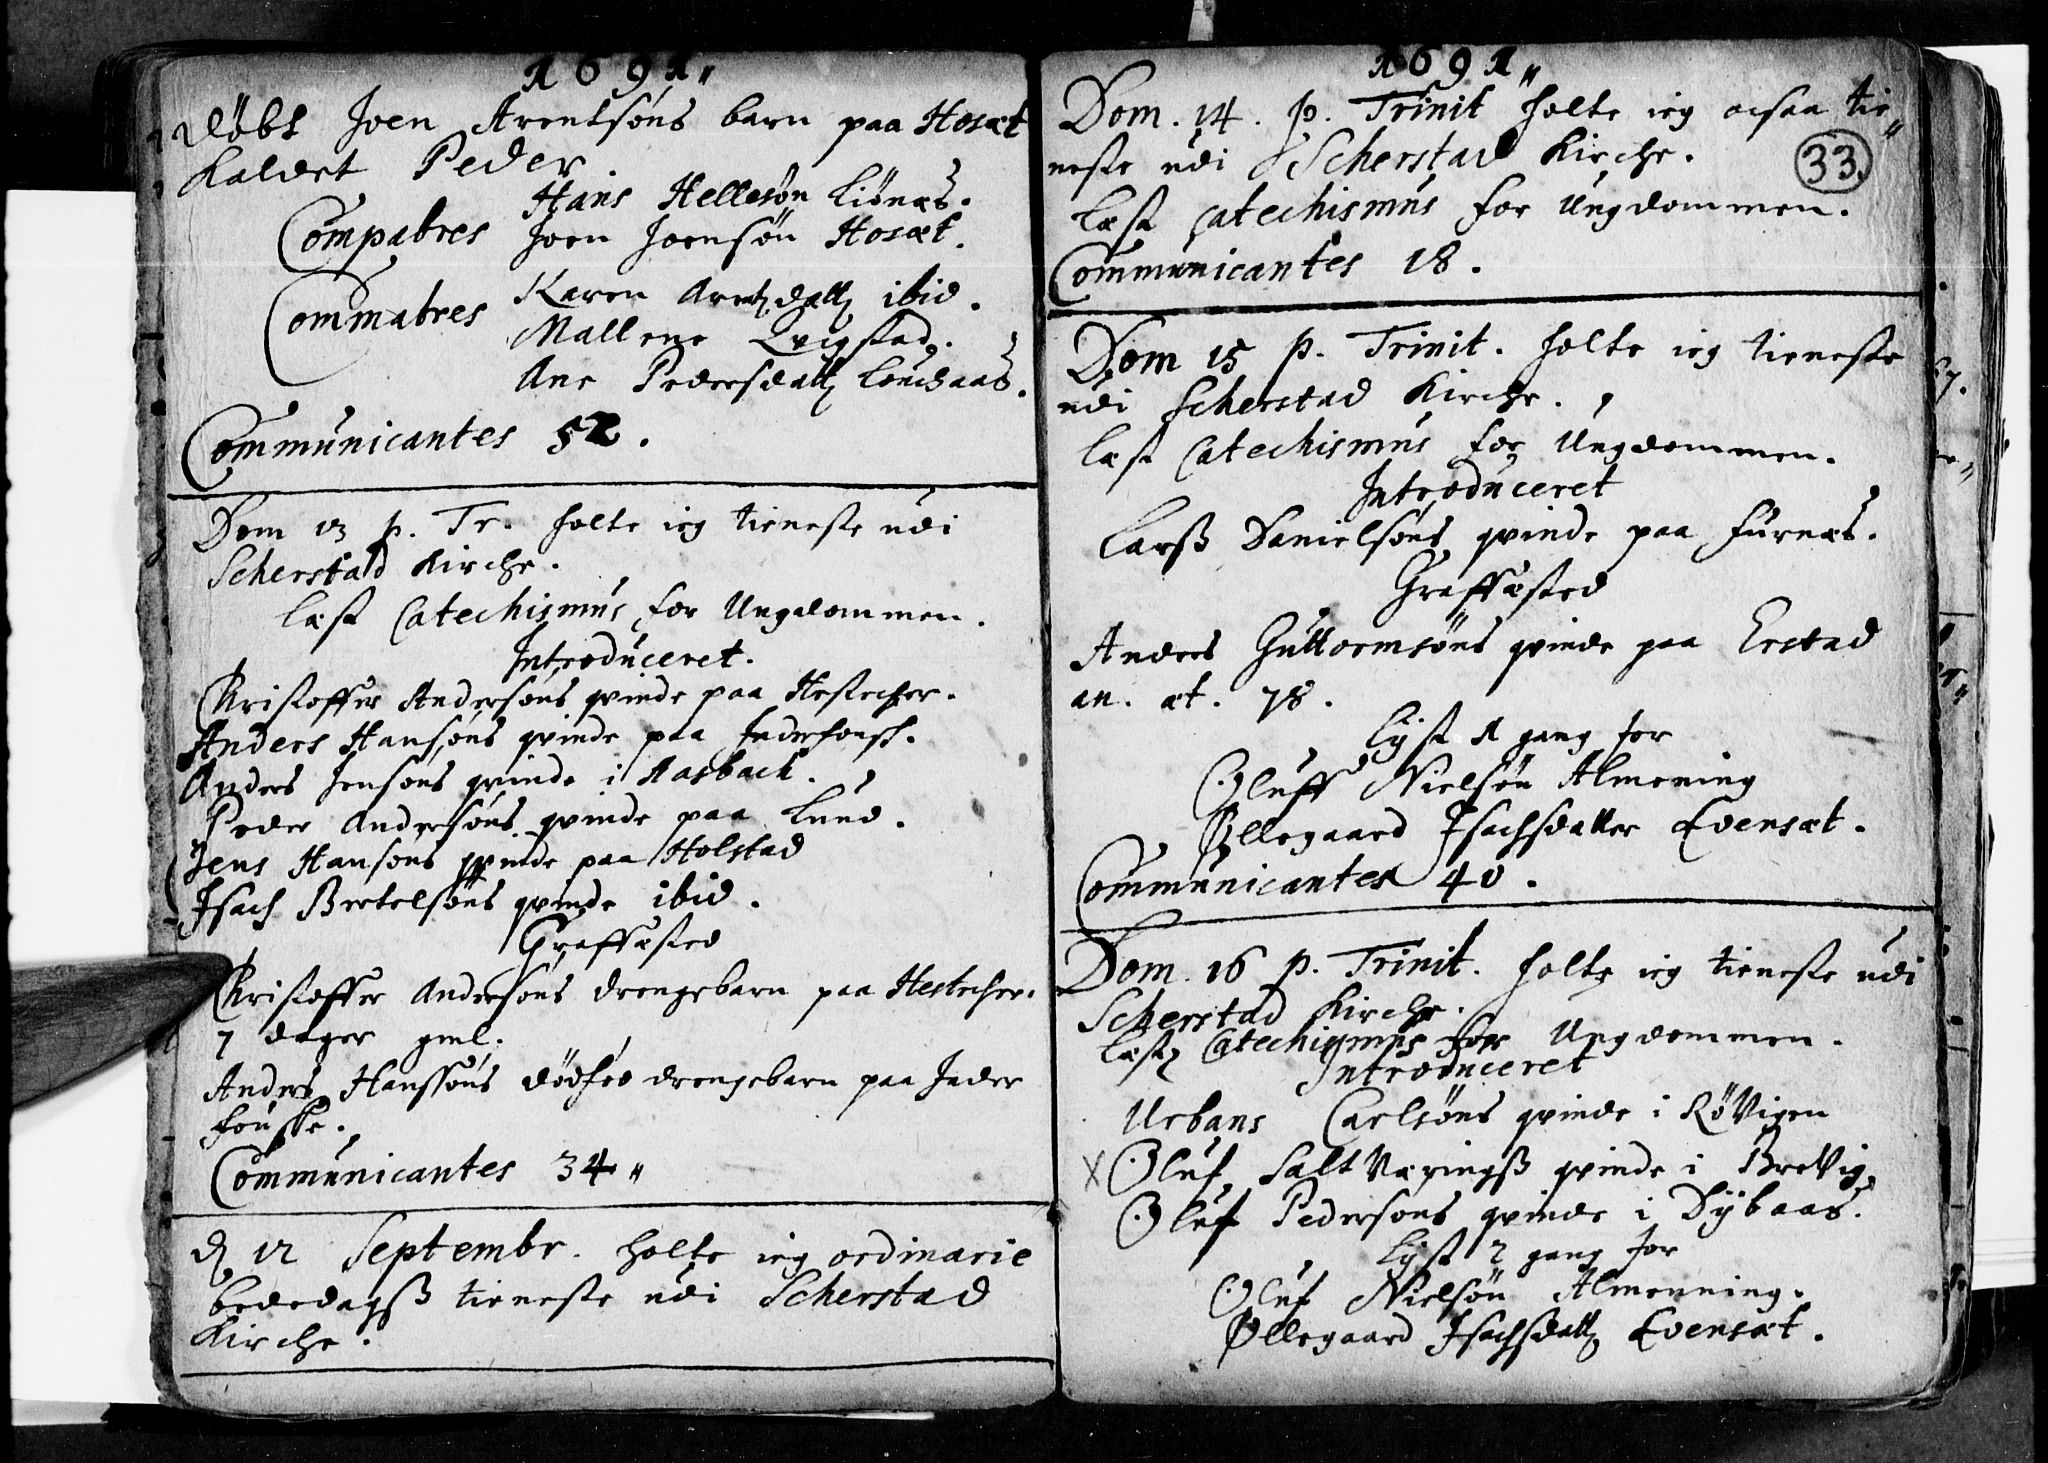 1691
døbt Joen Arentsøns barn paa Hosæt
kaldet Peder
Hans Hellesøn Liønæs.
Compatres Joen Joensøn Hosæt.
Karen Arentzdatt ibid.
Commatres
Mallene Qvigstad.
Ane Pedersdatt Loudaas.
Communicantes 52.
Dom 13 p. Tr. holte ieg tieneste udi
Scherstad Kirche.
læst Catechismus for Ungdommen.
Introduceret.
Christoffer Andersøns qvinde paa Hestecher.
Anders Hansøns qvinde paa Inderfousk.
Anders Jensøns qvinde i Aasbach.
Peder Andersøns qvinde paa Lund.
Jens Hansøns qvinde paa Holstad
Isach Bertelsøns qvinde ibid.
Graffæsted
Christoffer Andersøns drengebarn paa Hestecher.
7 dager gml.
Anders Hanssøns dødfød drengebarn paa Inder
fouske.
Communicantes 34
d 12 Septembr. holte ieg ordinarie
bededagß tieneste udi Scherstad
Kirche.
1691
Dom. 14. p. Trinit holte ieg ocsaa tie
neste udi Scherstad Kirche.
33
læst Catechismus for Ungdommen.
Communicantes 18.
Dom 15 p. Trinit. holte ieg tieneste
udi Scherstad Kirche.
læst Catechismus for Ungdommen.
Introduceret
Larß Danielsøns qvinde paa Furnæs.
Graffæsted
Anders Guttormsøns qvinde paa Erstad
an. æt. 78.
Lyst 1 gang for
Oluff Nielsøn Almening
Øllegaard Isachsdatter Evensæt.
Communicantes 40.
Dom. 16 p. Trinit. holte ieg tieneste udi
Scherstad Kirche.
læst Catechismus for Ungdommen.
Introduceret
Urbans Carlsøns qvinde i Røvigen
X Oluf Saltværingß qvinde i Brevig
Oluf Pedersøns qvinde i Dybaas.
Lyst 2 gang for
Oluf Nielsøn Almenning.
Øllegaard Isachsdatt Evensæt.